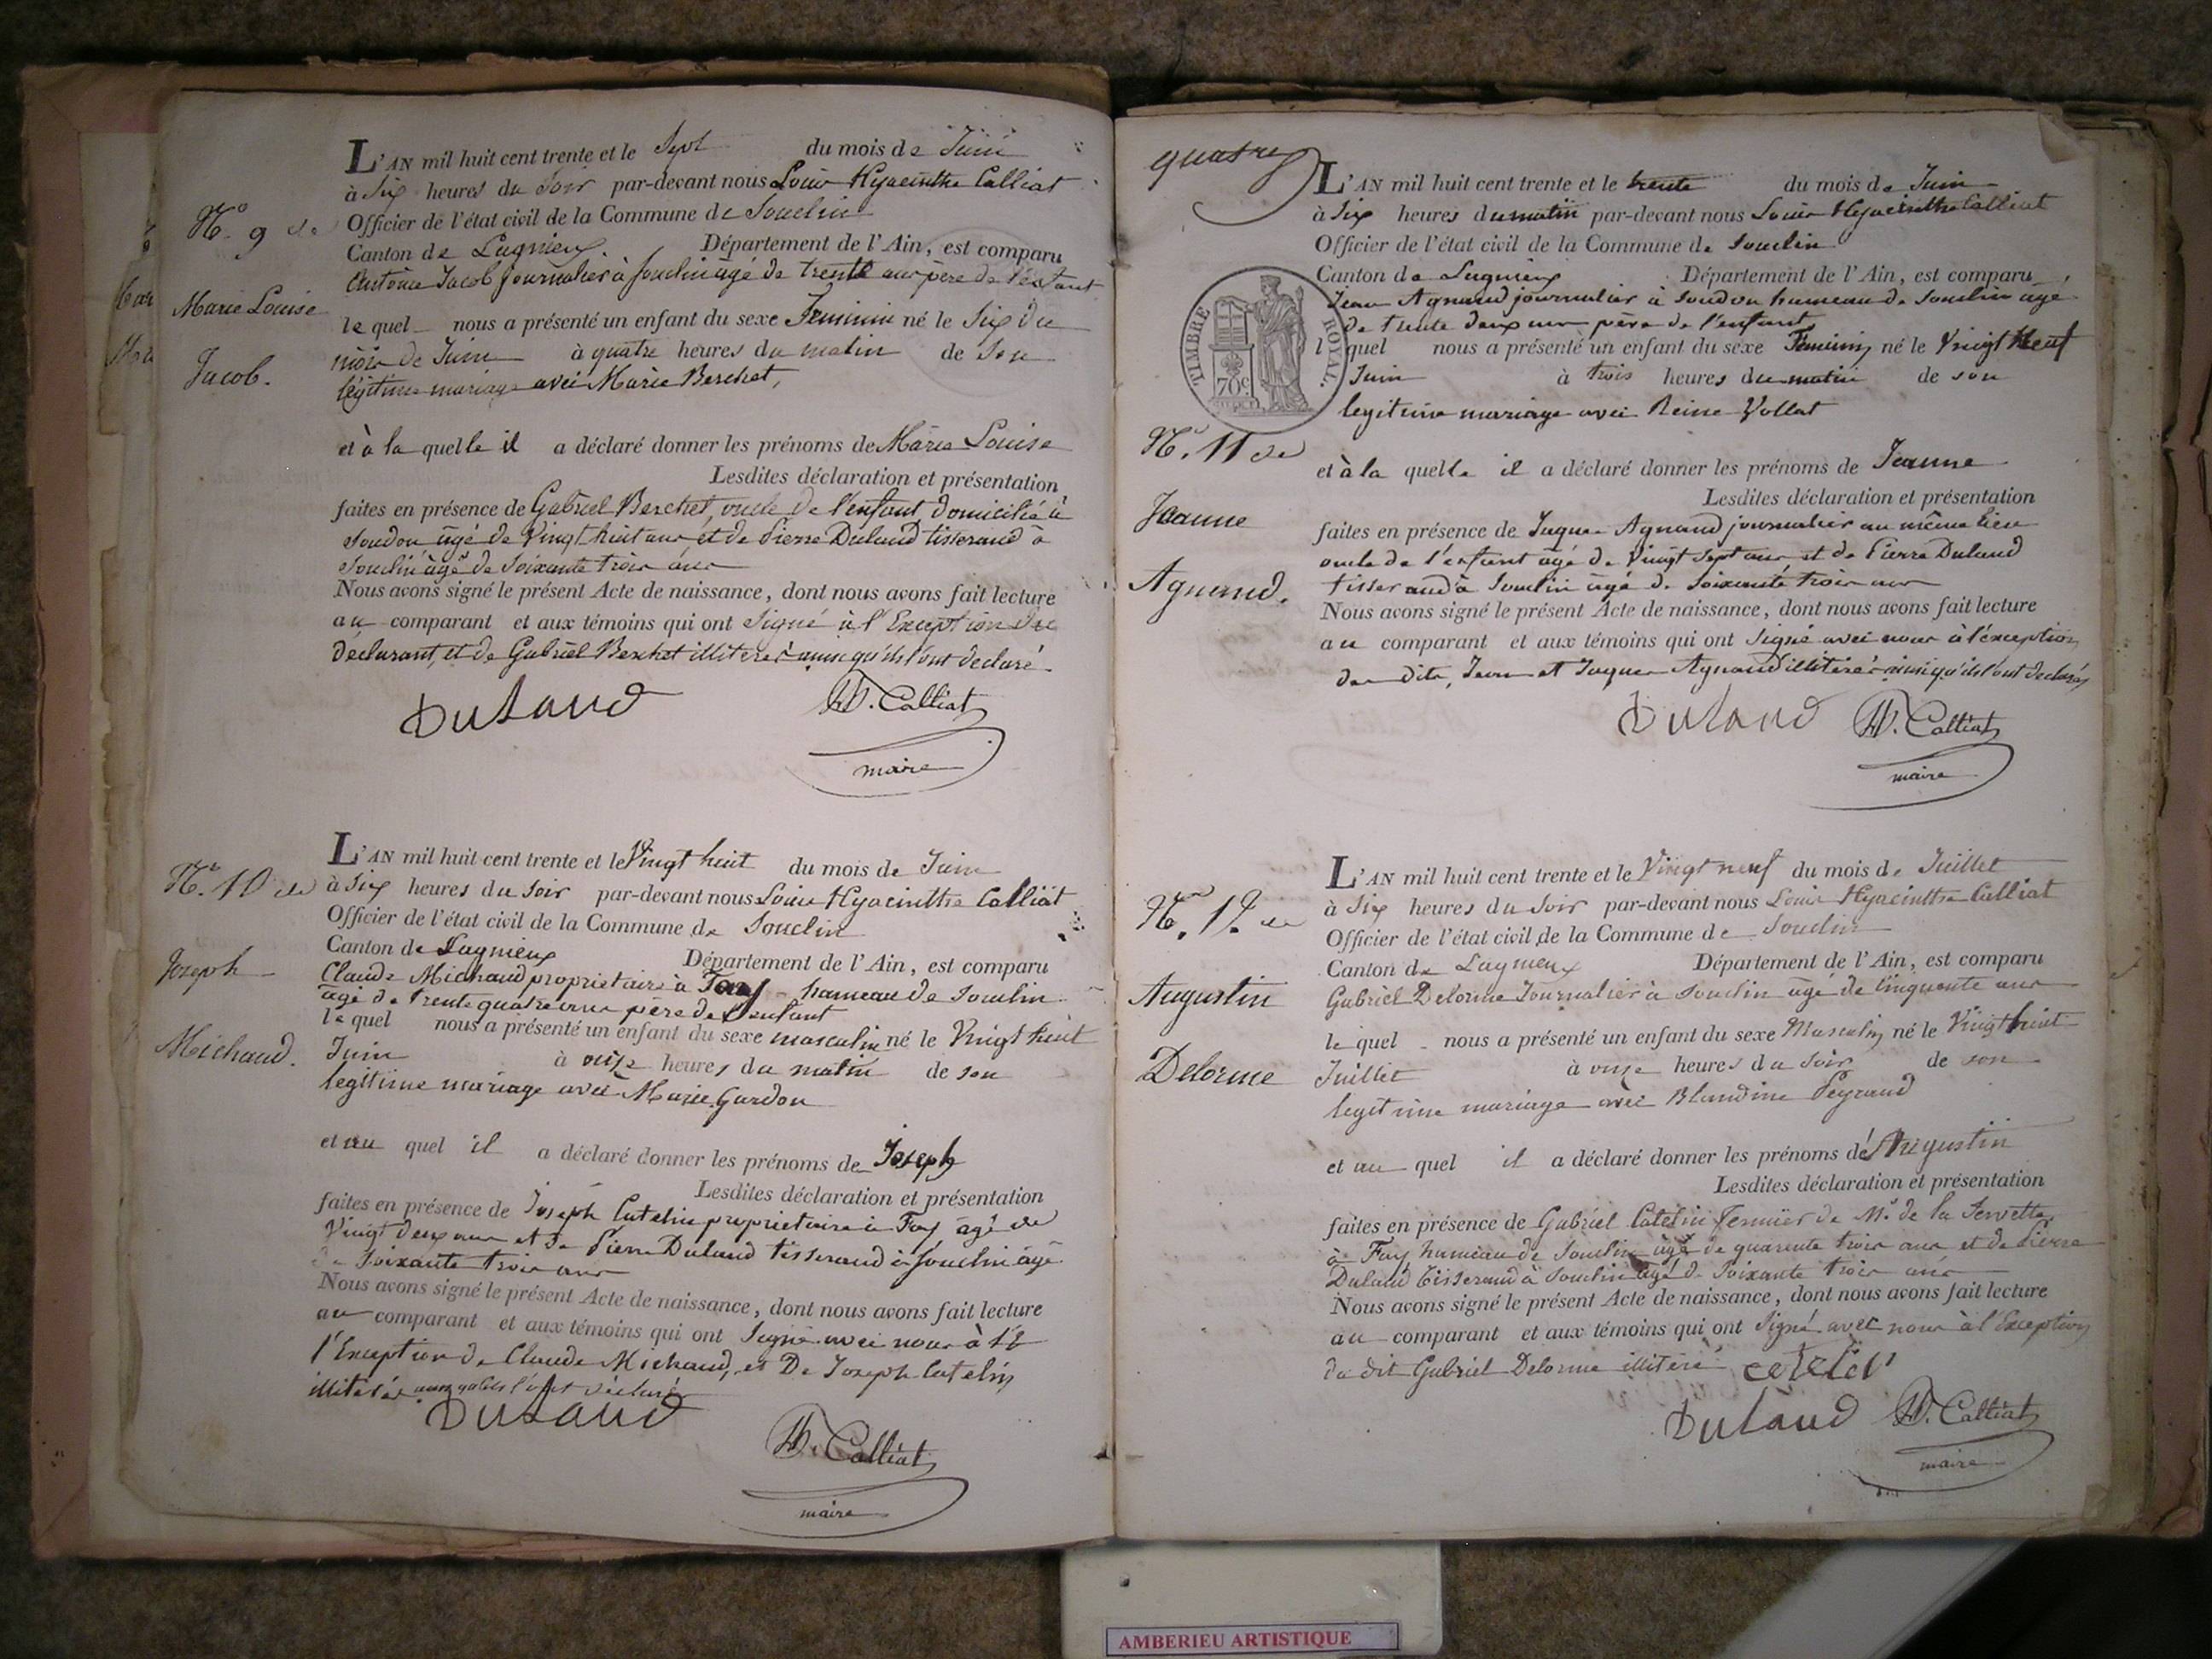 L'AN mil huit cent trente et le Sept du mois de Juin
à Six heures du Soir par-devant nous Louis Hyacinthe Calliat
Officier de l'état civil de la Commune de Souclin
Canton de Lagnieux Département de l'Ain, est comparu
Antoine Jacob Journalier à Souclin âgé de trente ans père de l'enfant
le quel nous a présenté un enfant du sexe Feminin né le Six du
mois de Juin à quatre heures du matin de son
légitime mariage avec Marie Berchet,
et à la quelle il a déclaré donner les prénoms de Marie Louise
Lesdites déclaration et présentation
faites en présence de Gabriel Berchet, oncle de l'enfant domicilié à
Soudon âgé de Vingt huit ans, et de Pierre Dulaud tisserand à
Souclin âgé de Soixante trois ans
Nous avons signé le présent Acte de naissance, dont nous avons fait lecture
au comparant et aux témoins qui ont Signé à l'Exception du
déclarant, et de Gabriel Berchet illiterés ainsi qu'ils l'ont declaré
Dulaud H. Calliat
maire
N.º 9 de
Marie Louise
Jacob.
L'AN mil huit cent trente et le Vingt huit du mois de Juin
à Six heures du Soir par-devant nous Louis Hyacinthe Calliat
Officier de l'état civil de la Commune de Souclin
Canton de Lagnieux Département de l'Ain, est comparu
Claude Michaud proprietaire à Fay hameau de Souclin
âgé de trente quatre ans père de l'enfant
le quel nous a présenté un enfant du sexe masculin né le Vingt huit
Juin à onze heures du matin de son
legitime mariage avec Marie Gardon
et au quel il a déclaré donner les prénoms de Joseph
Lesdites déclaration et présentation
faites en présence de Joseph Catelin proprietaire à Fay âgé de
Vingt deux ans et de Pierre Dulaud tisserand à Souclin âgé
de Soixante trois ans
Nous avons signé le présent Acte de naissance, dont nous avons fait lecture
au comparant et aux témoins qui ont Signé avec nous à l'E
l'Exception de Claude Michaud, et De Joseph Catelin
illiterés ainsi qu'ils l'ont déclaré
Dulaud
H. Calliat
maire
N.º 10 de
Joseph
Michaud.
quatre
L'AN mil huit cent trente et le trente du mois de Juin
à Six heures du matin par-devant nous Louis Hyacinthe Calliat
Officier de l'état civil de la Commune de Souclin
Canton de Lagnieux Département de l'Ain, est comparu
Jean Agnaud journalier à Soudon hameau de Souclin âgé
de trente deux ans père de l'enfant
l quel nous a présenté un enfant du sexe Féminin né le Vingt Neuf
Juin à trois heures du matin de son
legitime mariage avec Reine Vollat
et à la quelle il a déclaré donner les prénoms de Jeanne
Lesdites déclaration et présentation
faites en présence de Juques Agnaud journalier au même lieu
oncle de l'enfant âgé de Vingt Sept ans et de Pierre Dulaud
tisserand à Souclin âgé de Soixante trois ans
Nous avons signé le présent Acte de naissance, dont nous avons fait lecture
au comparant et aux témoins qui ont Signé avec nous à l'éxception
des dits, Jean et Juques Agnaud illitérés ainsi qu'ils l'ont declarés
Dulaud H. Calliat
maire
TIMBRE ROYAL.
70c
N.º 11 de
Jeanne
Agnaud.
L'AN mil huit cent trente et le Vingt neuf du mois de Juillet
à Six heures du Soir par-devant nous Louis Hyacinthe Calliat
Officier de l'état civil de la Commune de Souclin
Canton de Lagnieux Département de l'Ain, est comparu
Gabriel Delorme Journalier à Souclin âgé de Cinquante ans
le quel nous a présenté un enfant du sexe Masculin né le Vingt huit
Juillet à onze heures du Soir de son
legitime mariage avec Blandine Peyraud
et au quel il a déclaré donner les prénoms d'Augustin
Lesdites déclaration et présentation
faites en présence de Gabriel Catelin Fermier de M.r de la Servette
à Fay hameau de Souclin âgé de quarente trois ans et de Pierre
Dulaud tisserand à Souclin âgé de Soixante trois ans
Nous avons signé le présent Acte de naissance, dont nous avons fait lecture
au comparant et aux témoins qui ont Signé avec nous à l'Exception
du dit Gabriel Delorme illitéré catelin
Dulaud H. Calliat
maire
N.º 12 de
Augustin
Delorme
AMBERIEU ARTISTIQUE